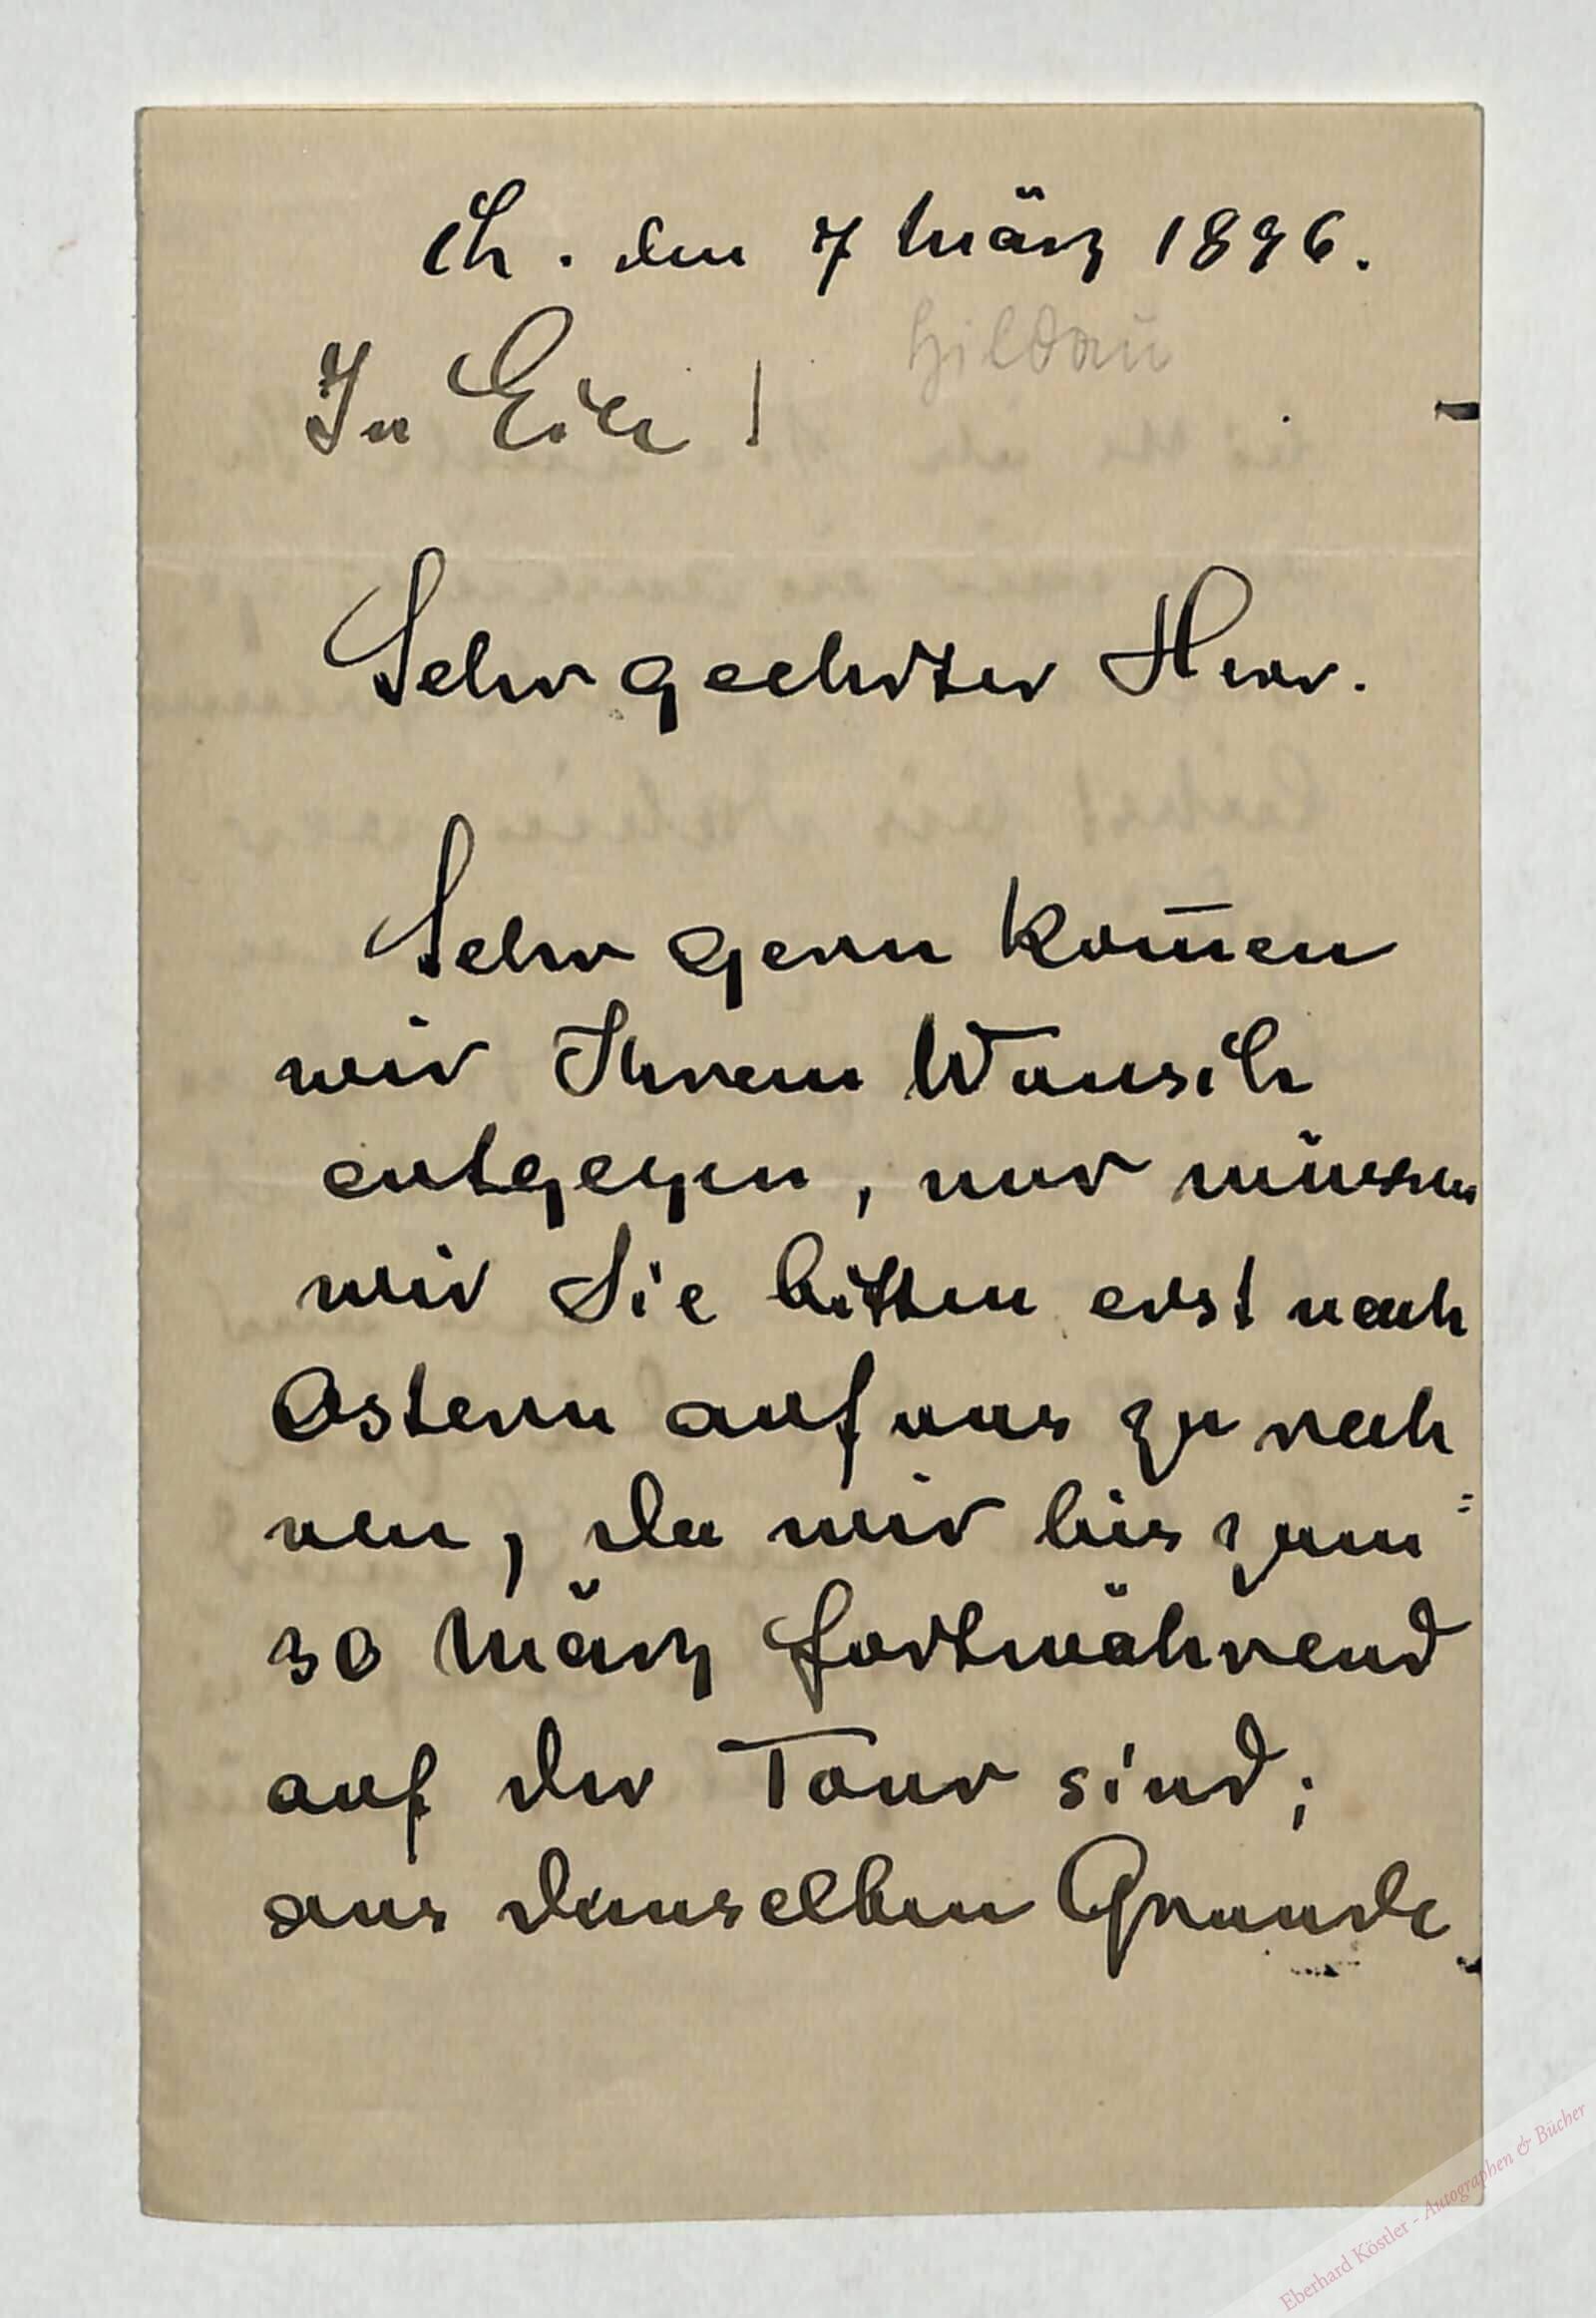 Ch. den 7 März 1896.
In Eile!
Sehr geehrter Herr.
Sehr gern kom̄en
wir Ihrem Wunsch
entgegen, nur müssen
wir Sie bitten erst nach
Ostern auf uns zu rech
nen, da wir bis zum
30 März fortwährend
auf der Tour sind;
aus demselben Grunde
Eberhard Köstler - Autographen & Bücher